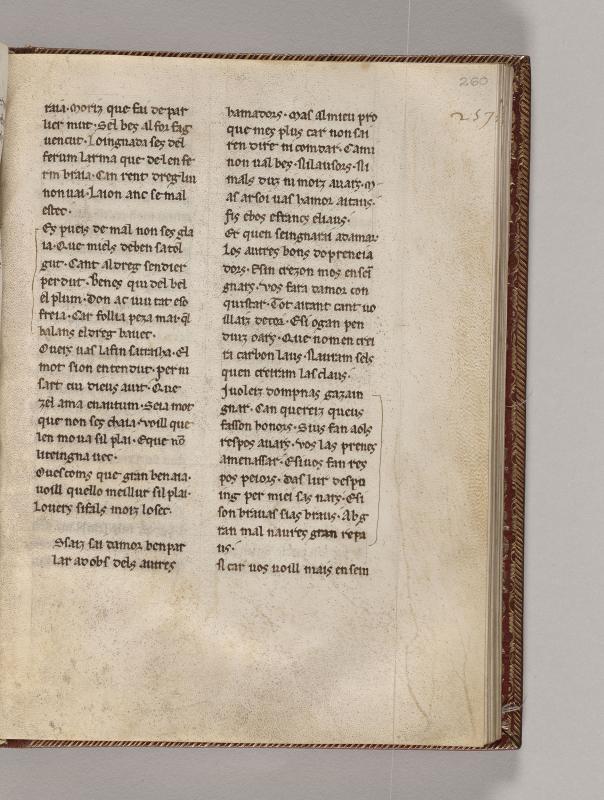 260
257
raia. Moriz que fai de par
lier mut. Sel bes al for sag
uencut. Loingnada ses del
ferm larma que delen fe
rm braia. Can rent dreg lui
non uai. Laion anc se mal
estec.
Es pueis de mal non ses gla
ia. Que miels deben sa tol
gut. Cant al dreg sendier
perdut. Benes qui del bel
el plum. Don ac uiu tat eso
freia. Car follia peza mai. q̃l
balans el dreg bauec.
Ouers uas la fin
mot son entendut. per ni
fart cui dieus aiut. Que
zel ama enautum. Seia mot
que non ses chaia. Voill que
len moua sil plai. E que nõ
liteingna uec.
Ouescoms que gran ben aia.
uoill quello meillur sil plai.
Louers moiz losec.
Ssaz sai damor ben par
lar ad obs dels autres
hamadors. Mas al mieu pro
que mes plus car non sai
ren dire ni comdar. Cami
non ual bes. Ni lausors. Ni
mals diz ni motz auars. M
as ar soi uas hamor aitaus.
fis ebos efrancs eliaus.
Er quen seingnarai adamar
Los autres bons dopreneia
dors. Esin crezon mos ensei
gnars. Vos fara damor con
quistar. Tot aitant cant uo
illaiz decor. Esi ogan pen
duz oars. Que nomen crei
ra carbon laus. Nauran sels
quen creiran las claus.
Si uoletz dompnas gazain
gnar. Can queretz queus
fasson honors. Sius fan aols
respos auars. Vos las prenes
amenassar. Esi uos fan res
pos peiors. Das lur del pu
ing per miei sas nars. Esi
son brauas sias braus. Ab g
ran mal naures gran repa
us.
A car uos uoill mais ensein